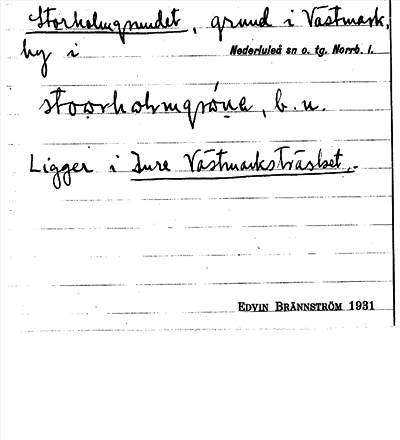 Storholmgrundet, grund i Västmark,
by i Nederluleå sn o. tg. Norrb. l.
b. u.
Ligger i Inre Västmarksträsket.
EDVIN BRÄNNSTRÖM 1931